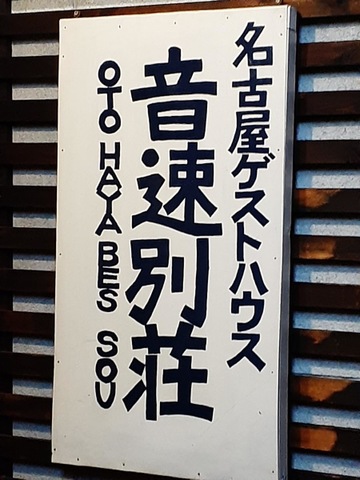 名古屋ゲストハウス
音速別荘
OTO HAYA BES SOU